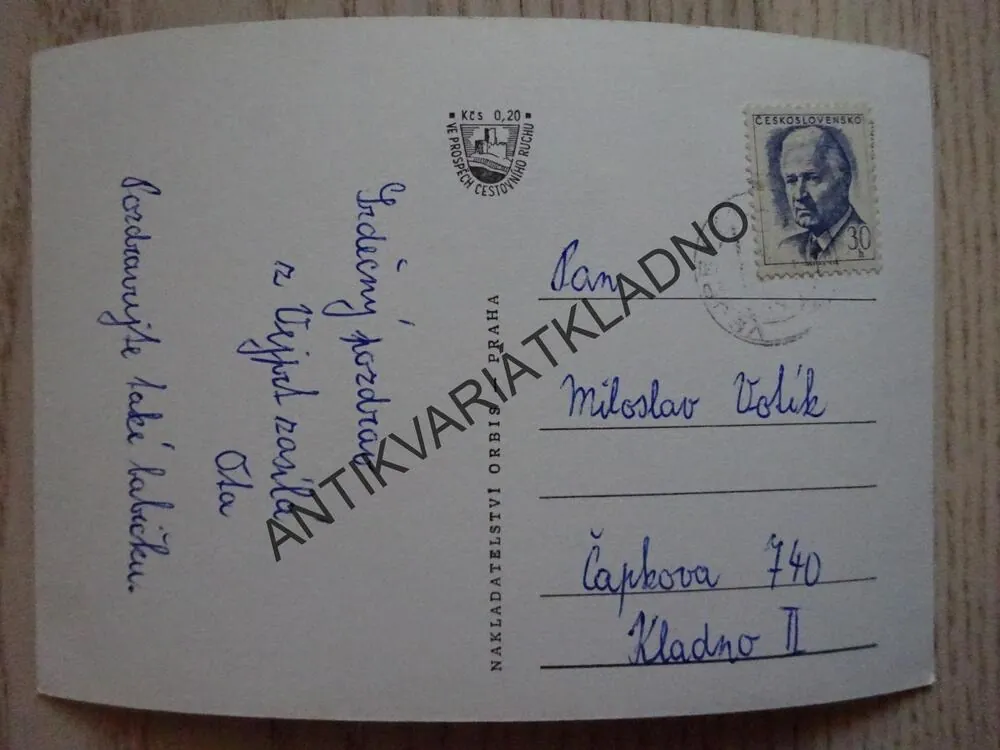 Srdečný pozdrav
z Vejprt zasílá
Ota
Pozdravujte také babičku.
Kčs 0,20
VE PROSPĚCH CESTOVNÍHO RUCHU
NAKLADATELSTVÍ ORBIS - PRAHA
ČESKOSLOVENSKO
30
h
Pan
Miloslav Volík
Čapkova 740
Kladno II
ANTIKVARIÁTKLADNO